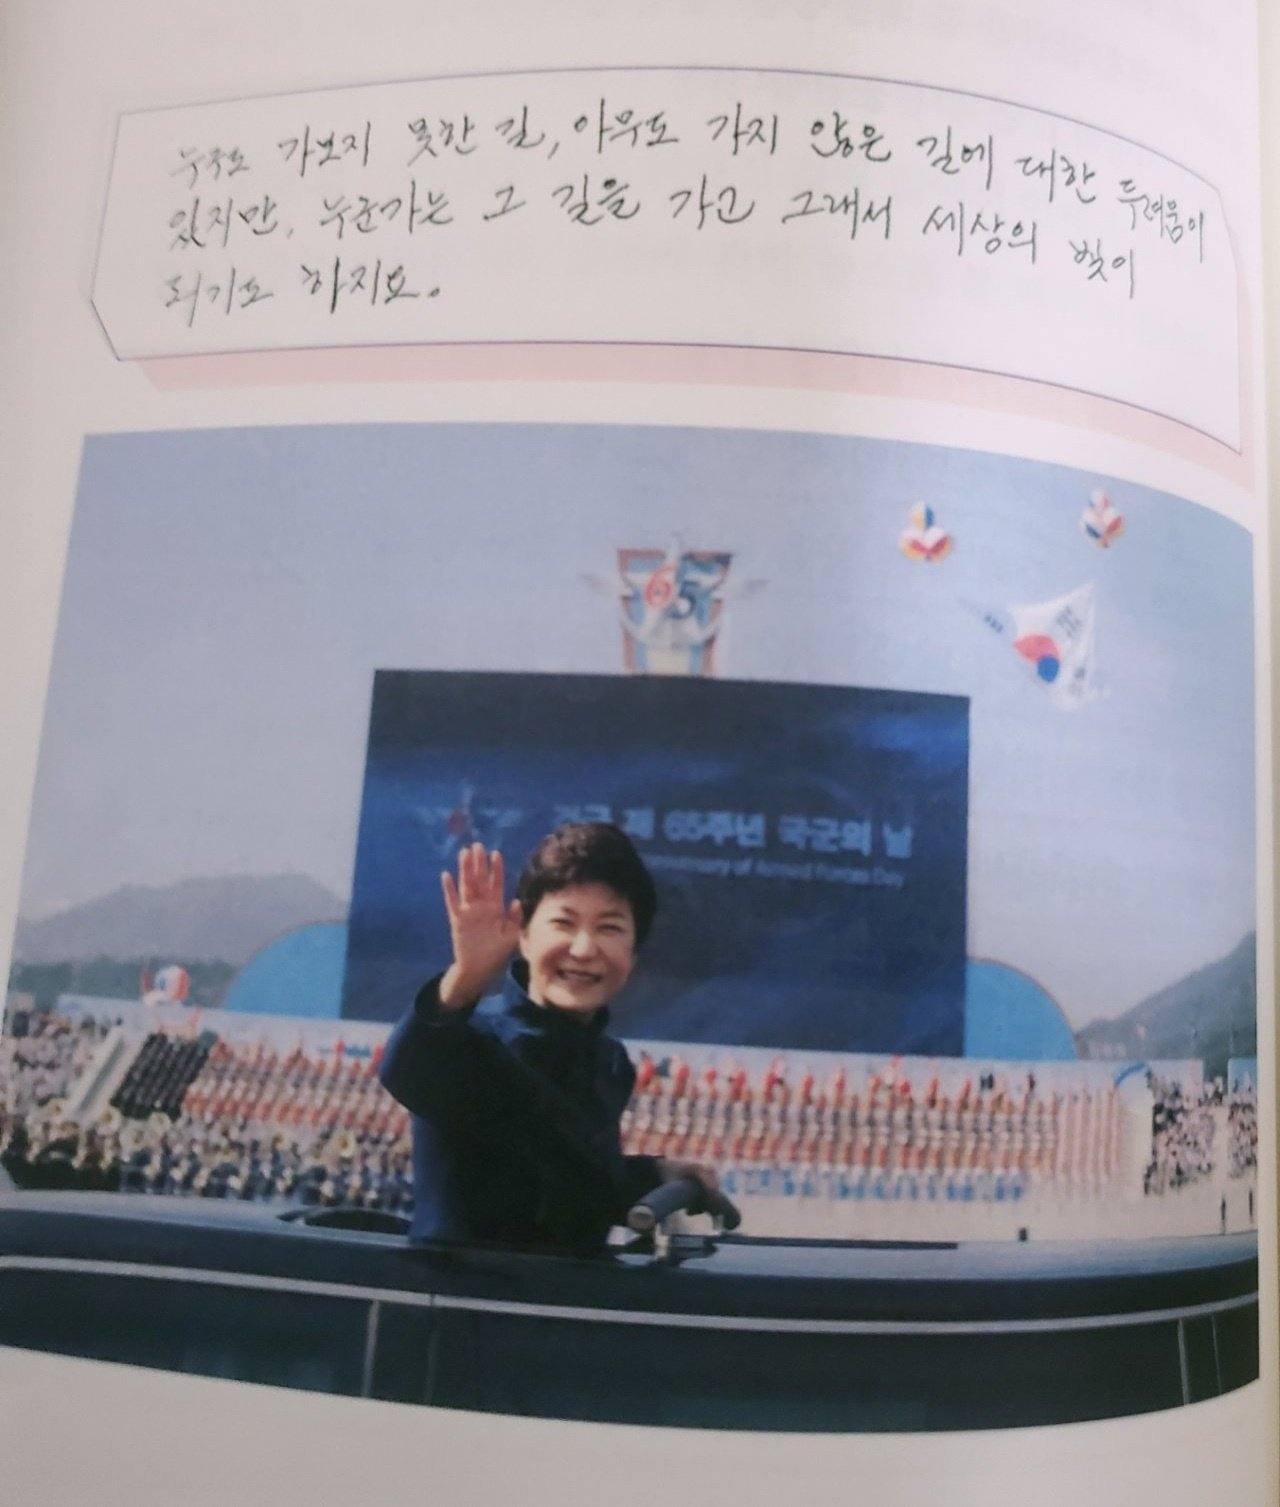 누구도 가보지 못한 길, 아무도 가지 않은 길에 대한 두려움이
있지만, 누군가는 그 길을 가고 그래서 세상의 빛이
되기도 하지요.
65
제 65주년 국군의 날
Anniversary of Armed Forces Day